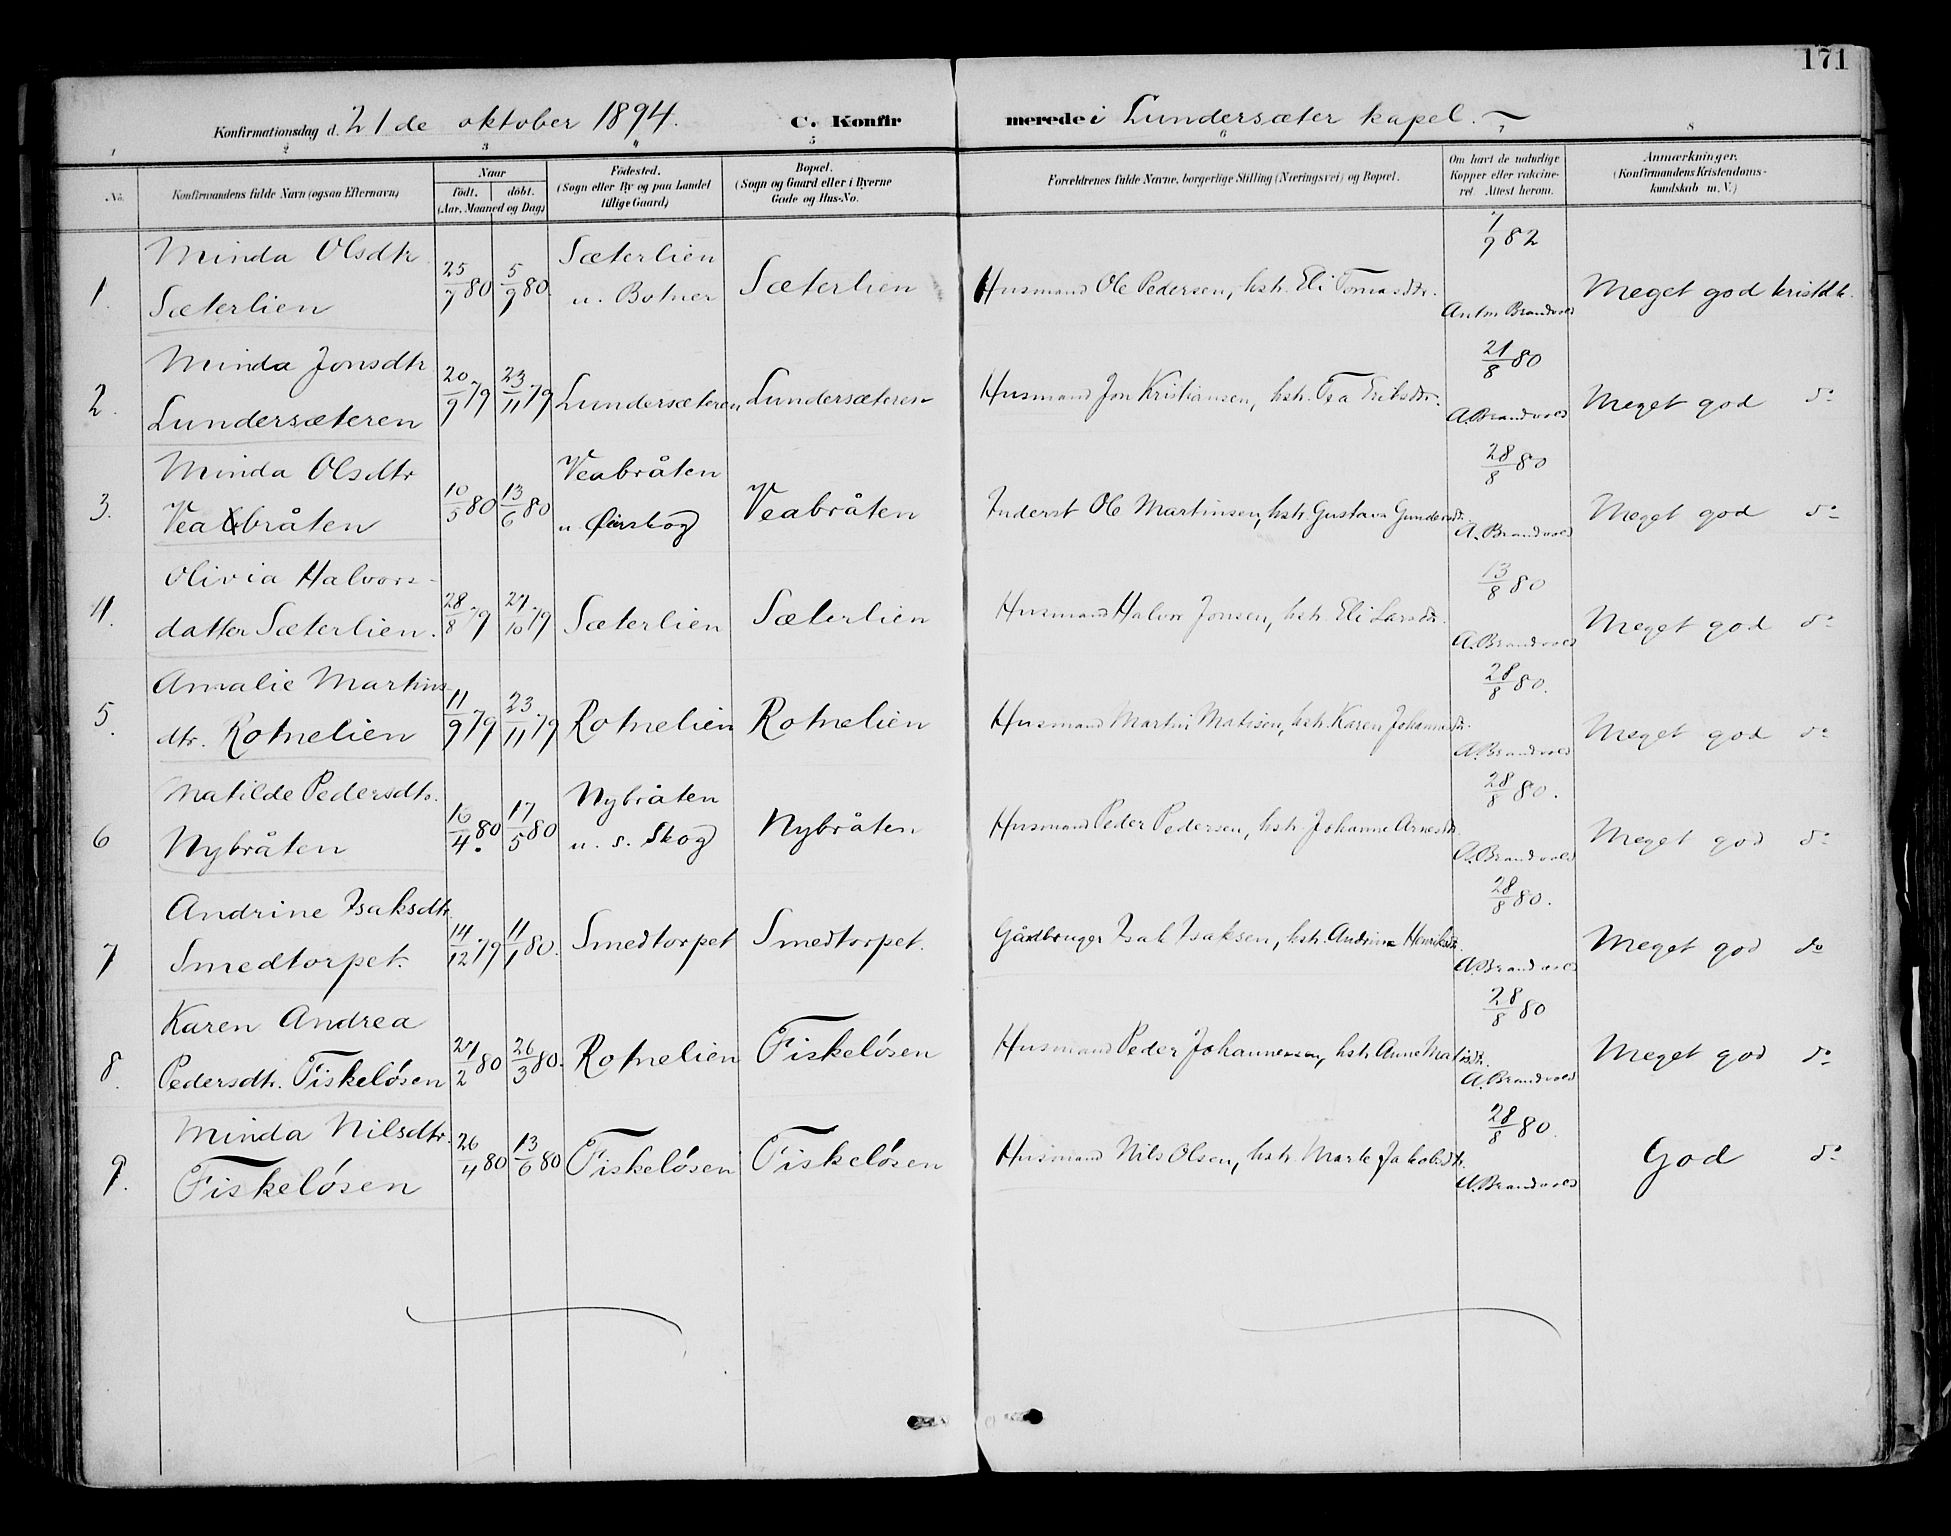 171
Konfirmationsdag d. 21de oktober 1894. C. Konfirmerede i Lundersæter kapel.
1 2 3 4 5 6 7 8
No. Konfirmandens fulde Navn (ogsaa Efternavn) Naar født. døbt. (Aar, Maaned og Dag) Fødested. (Sogn eller By og paa Landet tillige Gaard) Bopæl. (Sogn og Gaard eller i Byerne Gade og Hus-No. Forældrenes fulde Navne, borgerlige Stilling (Næringsvei) og Bopæl. Om havt de naturlige Kopper eller vakcineret. Attest herom. Anmærkninger. (Konfirmandens Kristendomskundskab m. V.)
1. Minda Olsdtr Sæterlien 25/7 80 5/9 80. Sæterlien u. Botner Sæterlien Husmand Ole Pedersen, hstr. Eli Tomasdtr. 1/9 82 Anton Brandvold Meget god kristdk.
2. Minda Jonsdtr Lundersæteren 20/9 79 23/11 79 Lundersæteren Lundersæteren Husmand Jon Kristiansen, hstr. Eriksdtr. 21/8 80 A. Brandvold Meget god do
3. Minda Olsdtr Veabråten 10/5 80 13/6 80 Veabråten u. Veabråten Inderst Ole Martinsen, hstr. Gustava Gundersdtr. 28/8 80 A. Brandvold Meget god do
4. Olivia Halvorsdatter Sæterlien. 28/8 79 /10 79 Sæterlien Sæterlien Husmand Halvor Jonsen, hstr. Eli Larsdtr. 13/8 80 A. Brandvold Meget god do
5. Amalie Martinsdtr. Rotnelien 11/9 79 23/11 79 Rotnelien Rotnelien Husmand Martin Matisen, hstr. Karen Johannesdtr. 28/8 80. A. Brandvold Meget god do
6 Matilde Pedersdtr. Nybråten 16/4 80 17/5 80 Nybråten u. s. Skog Nybråten Husmand Peder Pedersen, hstr. Johanne Arnesdtr. 28/8 80. A. Brandvold Meget god do
7 Andrine Isaksdtr. Smedtorpet. 14/12 79 11/1 80. Smedtorpet Smedtorpet. Gårdbruger Isak Isaksen, hstr. Andrine Henriksdtr. 28/8 80. A. Brandvold Meget god do
8. Karen Andrea Pedersdtr. Fiskeløsen /2 80 26/3 80. Rotnelien Fiskeløsen Husmand Peder Johannessen, hstr. Anne Matisdtr. 28/8 80 A. Brandvold Meget god do
9. Minda Nilsdtr. Fiskeløsen 26/4 80 13/6 80 Fiskeløsen Fiskeløsen Husmand Nils Olsen, hstr. Marte Jakobsdtr. 28/8 80. A. Brandvold God do